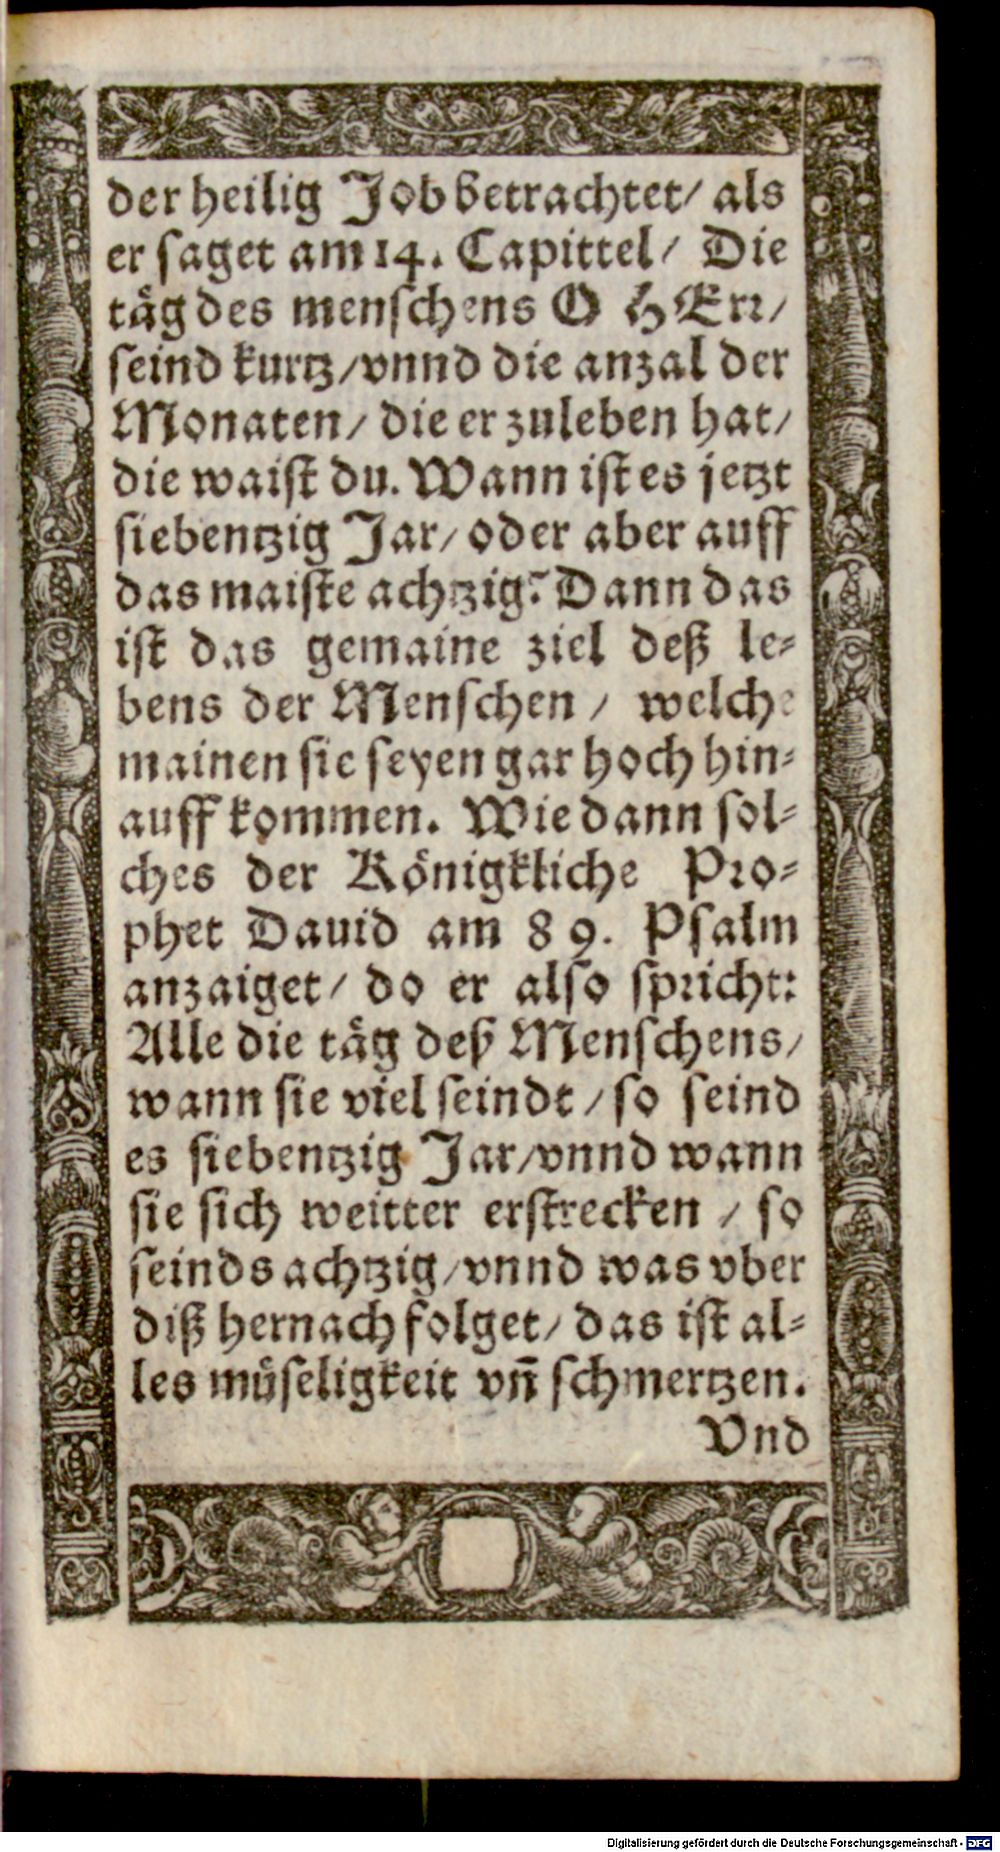 der heilig Job betrachtet/ als
er saget am 14. Capittel/ Die
täg des menschens O HErr/
seind kurtz/vnnd die anzal der
Monaten/ die er zuleben hat/
die waist du. Wann ist es jetzt
siebentzig Jar/ oder aber auff
das maiste achtzig? Dann das
ist das gemaine ziel deß le-
bens der Menschen / welche
mainen sie seyen gar hoch hin-
auff kommen. Wie dann sol-
ches der Königkliche Pro-
phet Dauid am 89. Psalm
anzaiget/ do er also spricht:
Alle die täg deß Menschens/
wann sie viel seindt / so seind
es siebentzig Jar/vnnd wann
sie sich weitter erstrecken / so
seinds achtzig/vnnd was vber
diß hernach folget/ das ist al-
les müseligkeit vn̄ schmertzen.
Vnd
Digitalisierung gefördert durch die Deutsche Forschungsgemeinschaft - DFG